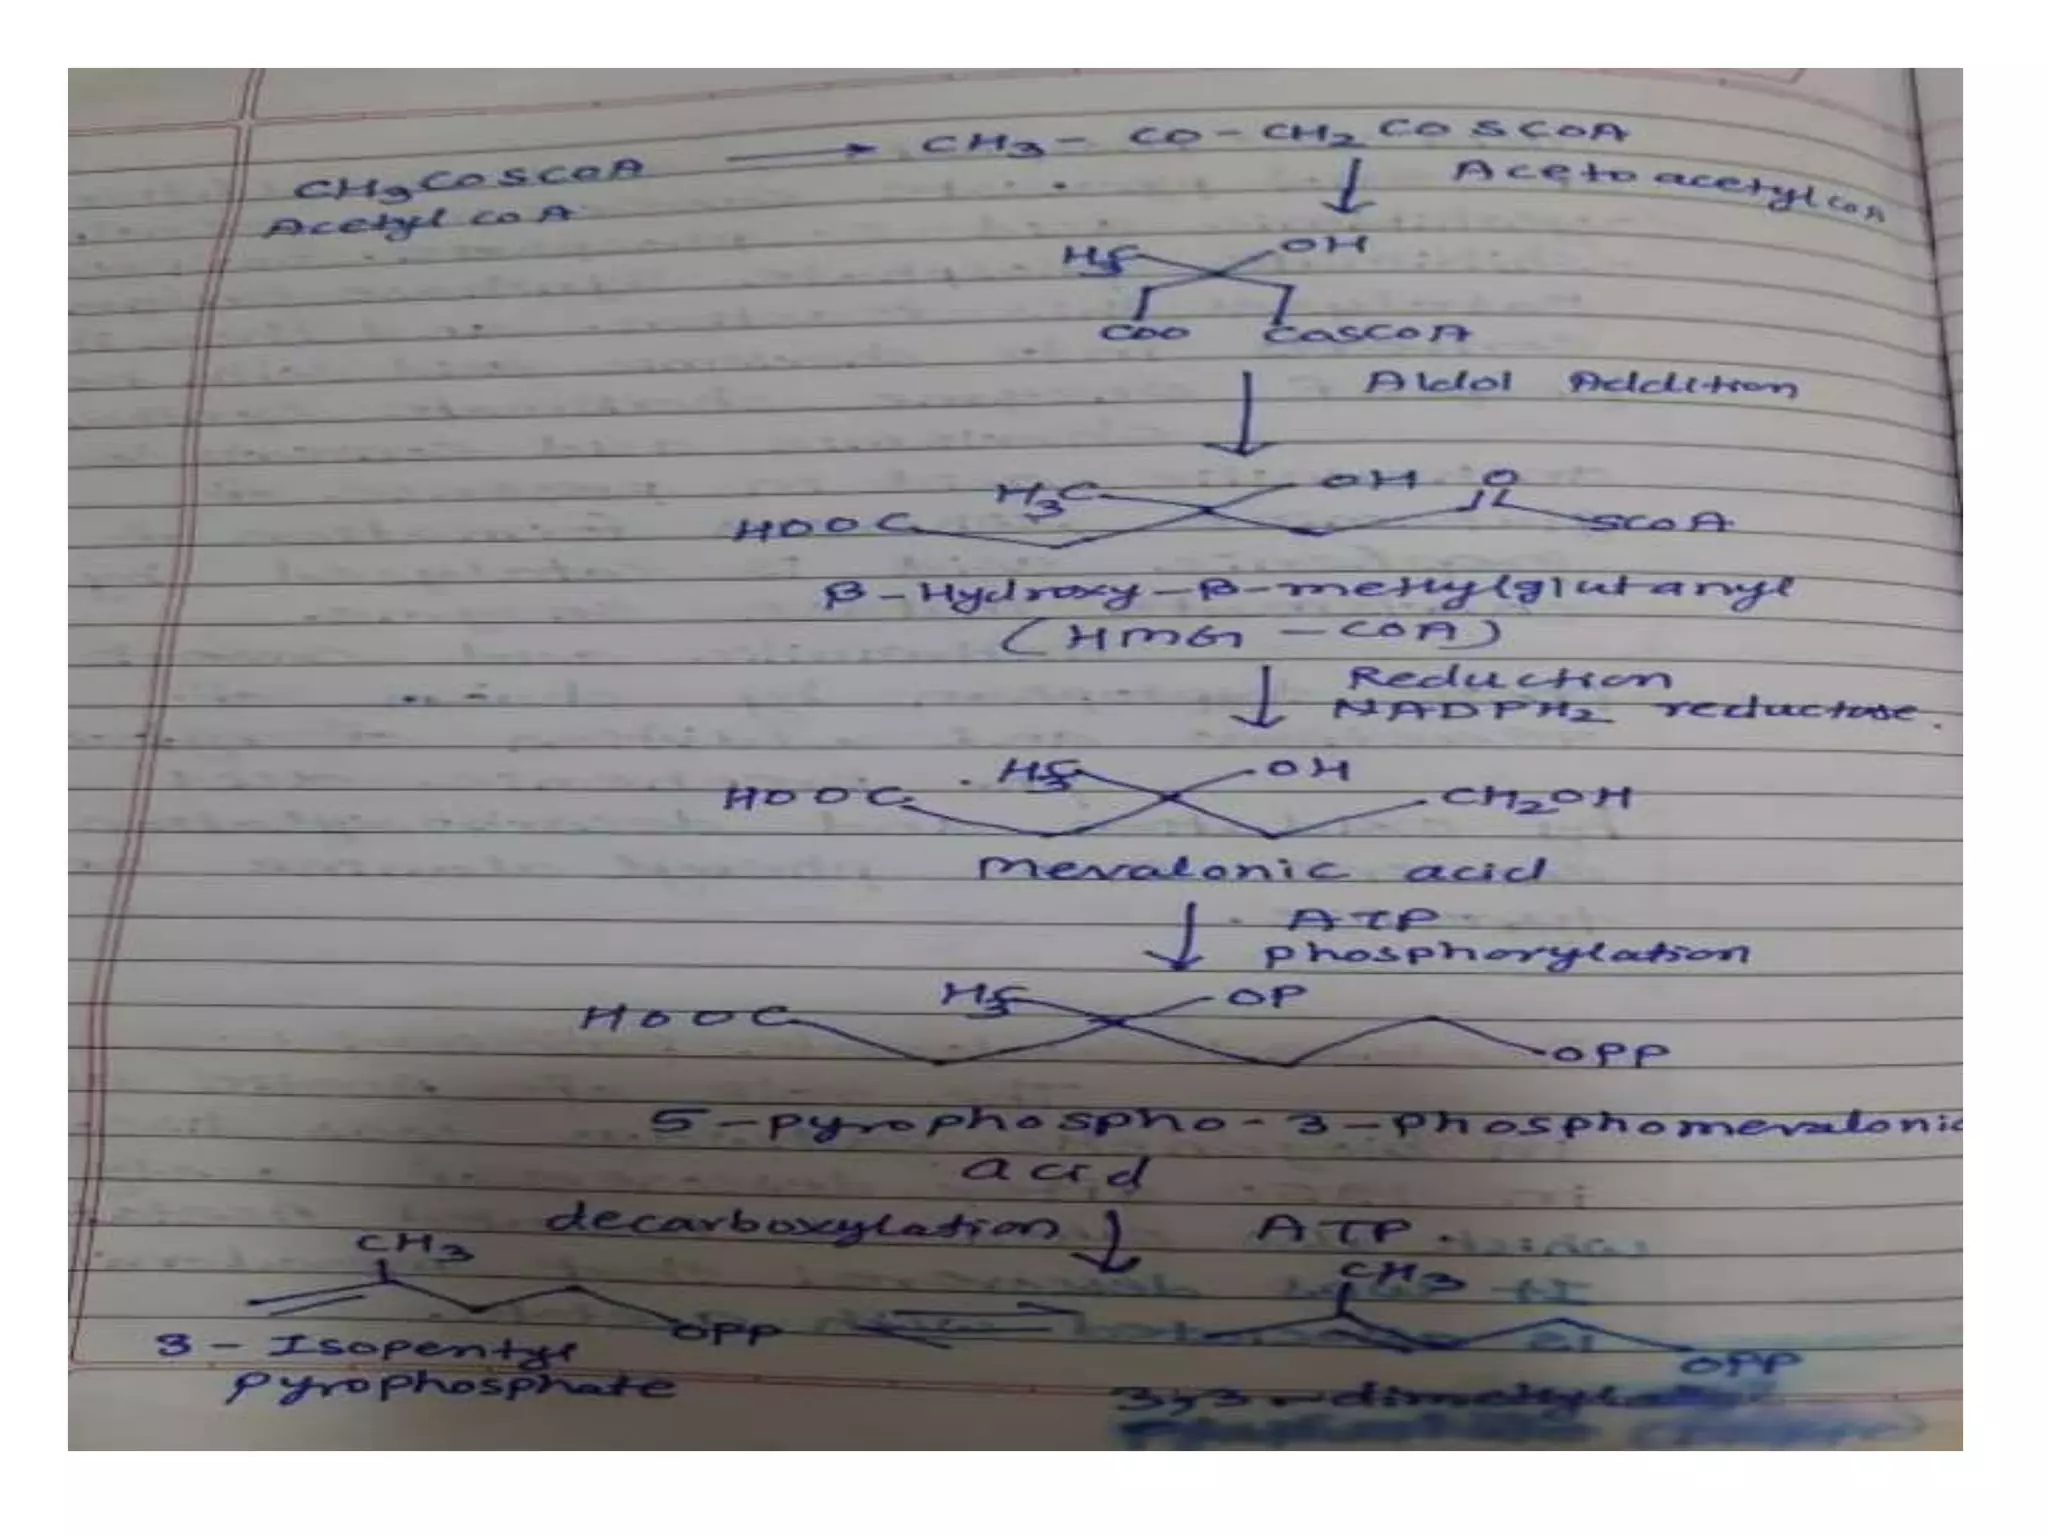 CH3COSCOA → CH3 - CO - CH2 COSCOA
Acetyl COA
Aceto acetyl COA
H3C OH
COO COSCOA
Aldol Addition
H3C OH O
HOOC SCOA
β - Hydroxy - β - methylglutaryl
(HMG - COA)
Reduction
NADPH2 reductase.
H3C OH
HOOC CH2OH
mevalonic acid
ATP
phosphorylation
H3C OP
HOOC OPP
5 - pyrophospho - 3 - phosphomevalonic
acid
decarboxylation ATP
CH3 CH3
OPP ⇌ OPP
3 - Isopentyl
pyrophosphate
3,3 - dimethyl